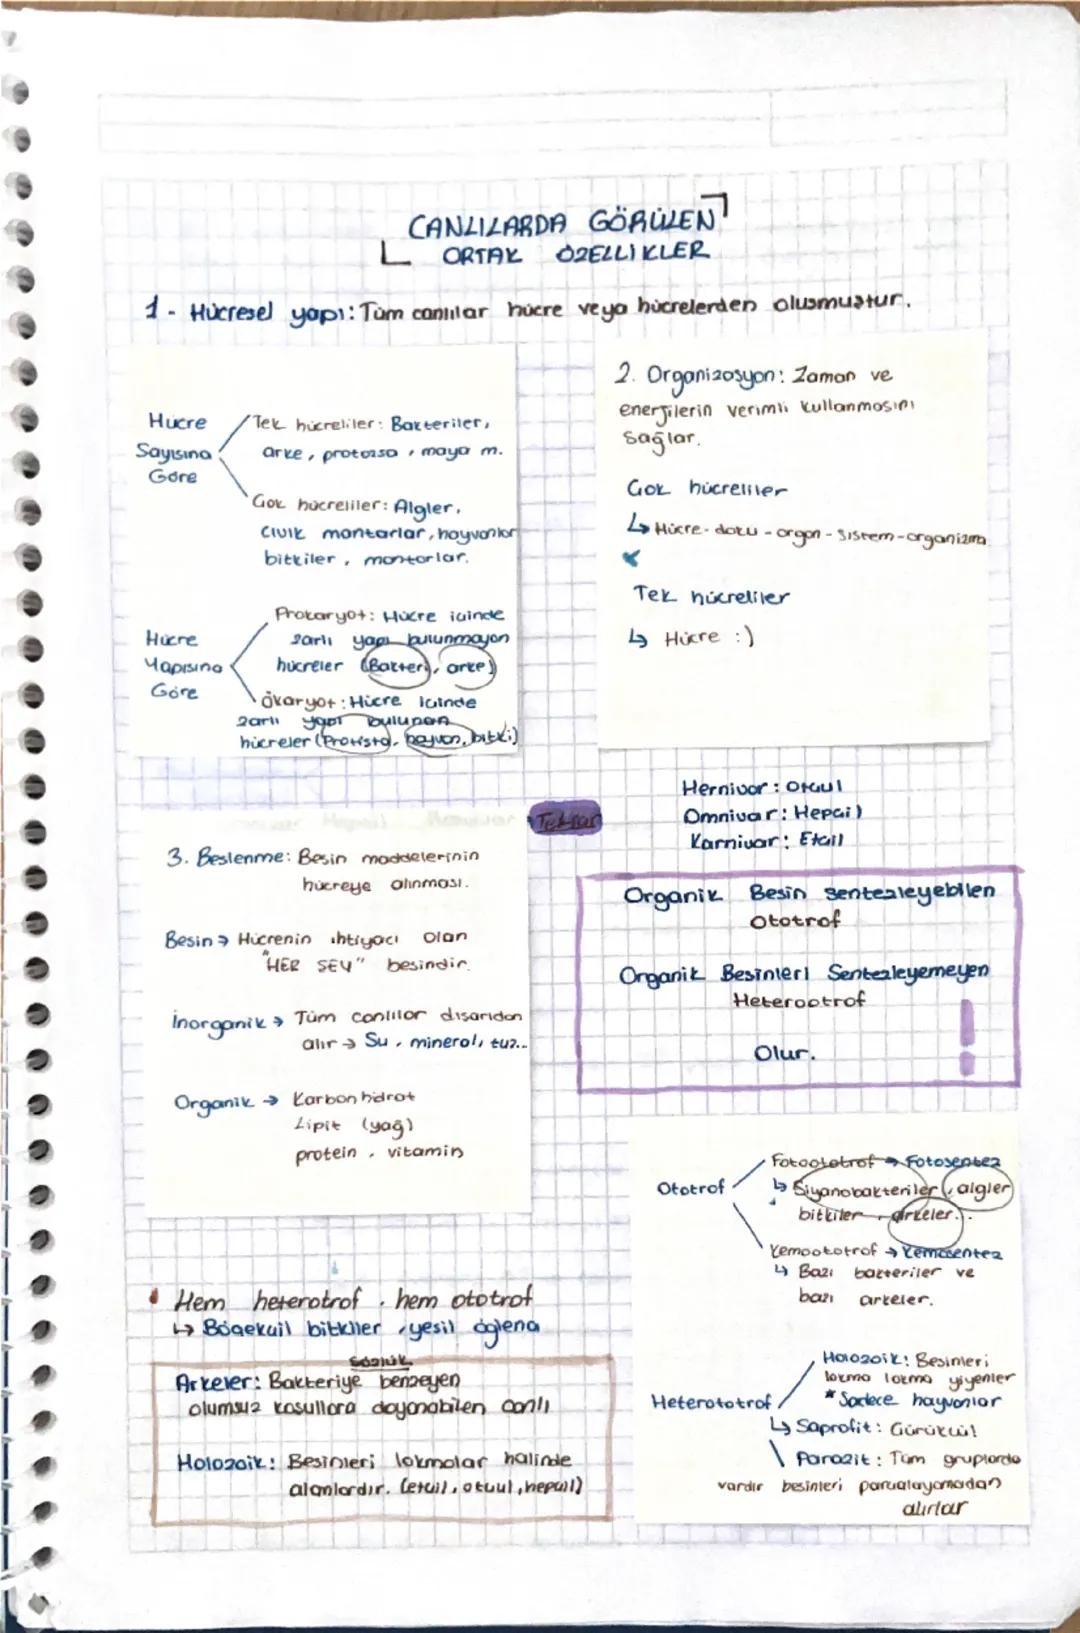 CANLILARDA GÖRÜLEN
ORTAK ÖZELLİKLER
1 - Hücresel yapı: Tüm canlılar hücre veya hücrelerden oluşmuştur.
Hücre
Sayısına
Göre
Tek hücreliler: Bakteriler,
arke, protozoa, maya m.
Çok hücreliler: Algler,
cıvık mantarlar, hayvanlar
bitkiler, mantarlar.
Hücre
Yapısına
Göre
Prokaryot: Hücre içinde
zarlı yapı bulunmayan
hücreler (Bakteri, arke)
Ökaryot: Hücre içinde
zarlı yapı bulunan
hücreler (Protista, hayvan, bitki)
2. Organizasyon: Zaman ve
enerjilerin verimli kullanmasını
sağlar.
Çok hücreliler
↳ Hücre - doku - organ - sistem - organizma
Tek hücreliler
↳ Hücre :)
Tekrar
Hernivor: Otçul
Omnivar: Hepçil
Karnivar: Etçil
3. Beslenme: Besin maddelerinin
hücreye alınması.
Besin → Hücrenin ihtiyacı olan
"HER ŞEY" besindir.
İnorganik → Tüm canlılar dışarıdan
alır → Su, mineral, tuz...
Organik → Karbonhidrat
Lipit (yağ)
protein, vitamin
Organik Besin sentezleyebilen
Ototrof
Organik Besinleri Sentezleyemeyen
Heterootrof
Olur.
!
Ototrof
Fotoototrof → Fotosentez
↳ Siyanobakteriler, algler
bitkiler, arkeler..
Kemoototrof → Kemosentez
↳ Bazı bakteriler ve
bazı arkeler.
Hem heterotrof, hem ototrof
↳ Böcekçil bitkiler, yeşil öglena
Sözlük
Arkeler: Bakteriye benzeyen
olumsuz koşullara dayanabilen canlı
Holozoik: Besinleri lokmalar halinde
alanlardır. (etçil, otçul, hepçil)
Heterototrof
Holozoik: Besinleri
lokma lokma yiyenler
* Sadece hayvanlar
↳ Saprofit: Çürükçül
Parazit: Tüm gruplarda
vardır besinleri parçalayamadan
alırlar